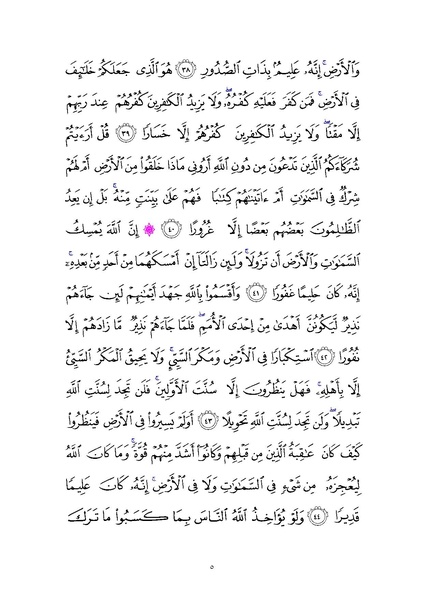 وَٱلْأَرْضِ ۚ إِنَّهُۥ عَلِيمُۢ بِذَاتِ ٱلصُّدُورِ ٣٨ هُوَ ٱلَّذِى جَعَلَكُمْ خَلَٰٓئِفَ
فِى ٱلْأَرْضِ ۚ فَمَن كَفَرَ فَعَلَيْهِ كُفْرُهُۥ ۖ وَلَا يَزِيدُ ٱلْكَٰفِرِينَ كُفْرُهُمْ عِندَ رَبِّهِمْ
إِلَّا مَقْتًا ۖ وَلَا يَزِيدُ ٱلْكَٰفِرِينَ كُفْرُهُمْ إِلَّا خَسَارًا ٣٩ قُلْ أَرَءَيْتُمْ
شُرَكَآءَكُمُ ٱلَّذِينَ تَدْعُونَ مِن دُونِ ٱللَّهِ أَرُونِى مَاذَا خَلَقُوا۟ مِنَ ٱلْأَرْضِ أَمْ لَهُمْ
شِرْكٌ فِى ٱلسَّمَٰوَٰتِ أَمْ ءَاتَيْنَٰهُمْ كِتَٰبًا فَهُمْ عَلَىٰ بَيِّنَتٍ مِّنْهُ ۚ بَلْ إِن يَعِدُ
ٱلظَّٰلِمُونَ بَعْضُهُم بَعْضًا إِلَّا غُرُورًا ٤٠ ۞ إِنَّ ٱللَّهَ يُمْسِكُ
ٱلسَّمَٰوَٰتِ وَٱلْأَرْضَ أَن تَزُولَا ۚ وَلَئِن زَالَتَآ إِنْ أَمْسَكَهُمَا مِنْ أَحَدٍ مِّنۢ بَعْدِهِۦٓ ۚ
إِنَّهُۥ كَانَ حَلِيمًا غَفُورًا ٤١ وَأَقْسَمُوا۟ بِٱللَّهِ جَهْدَ أَيْمَٰنِهِمْ لَئِن جَآءَهُمْ
نَذِيرٌ لَّيَكُونُنَّ أَهْدَىٰ مِنْ إِحْدَى ٱلْأُمَمِ ۖ فَلَمَّا جَآءَهُمْ نَذِيرٌ مَّا زَادَهُمْ إِلَّا
نُفُورًا ٤٢ ٱسْتِكْبَارًا فِى ٱلْأَرْضِ وَمَكْرَ ٱلسَّيِّئِ ۚ وَلَا يَحِيقُ ٱلْمَكْرُ ٱلسَّيِّئُ
إِلَّا بِأَهْلِهِۦ ۚ فَهَلْ يَنظُرُونَ إِلَّا سُنَّتَ ٱلْأَوَّلِينَ ۚ فَلَن تَجِدَ لِسُنَّتِ ٱللَّهِ
تَبْدِيلًا ۖ وَلَن تَجِدَ لِسُنَّتِ ٱللَّهِ تَحْوِيلًا ٤٣ أَوَلَمْ يَسِيرُوا۟ فِى ٱلْأَرْضِ فَيَنظُرُوا۟
كَيْفَ كَانَ عَٰقِبَةُ ٱلَّذِينَ مِن قَبْلِهِمْ وَكَانُوٓا۟ أَشَدَّ مِنْهُمْ قُوَّةً ۚ وَمَا كَانَ ٱللَّهُ
لِيُعْجِزَهُۥ مِن شَىْءٍ فِى ٱلسَّمَٰوَٰتِ وَلَا فِى ٱلْأَرْضِ ۚ إِنَّهُۥ كَانَ عَلِيمًا
قَدِيرًا ٤٤ وَلَوْ يُؤَاخِذُ ٱللَّهُ ٱلنَّاسَ بِمَا كَسَبُوا۟ مَا تَرَكَ
٥